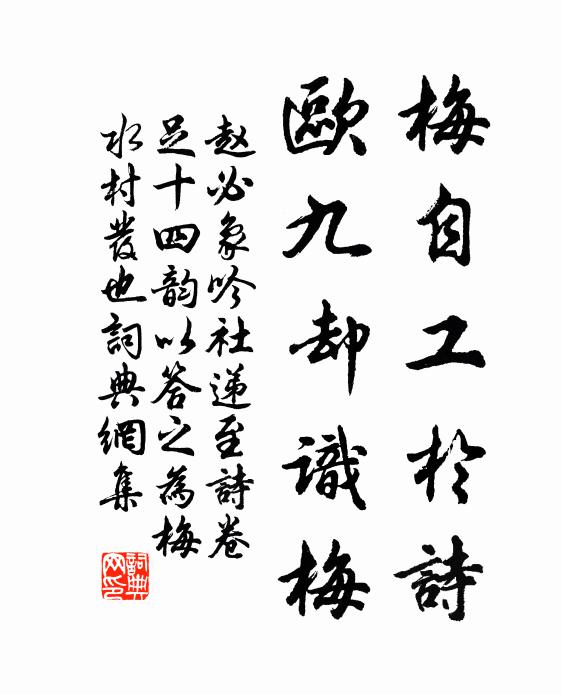 梅自工於詩
歐九却識梅
赵必象吟社递至詩卷
足十四韵以答之為梅
水村發也詞典網集
詞典网印